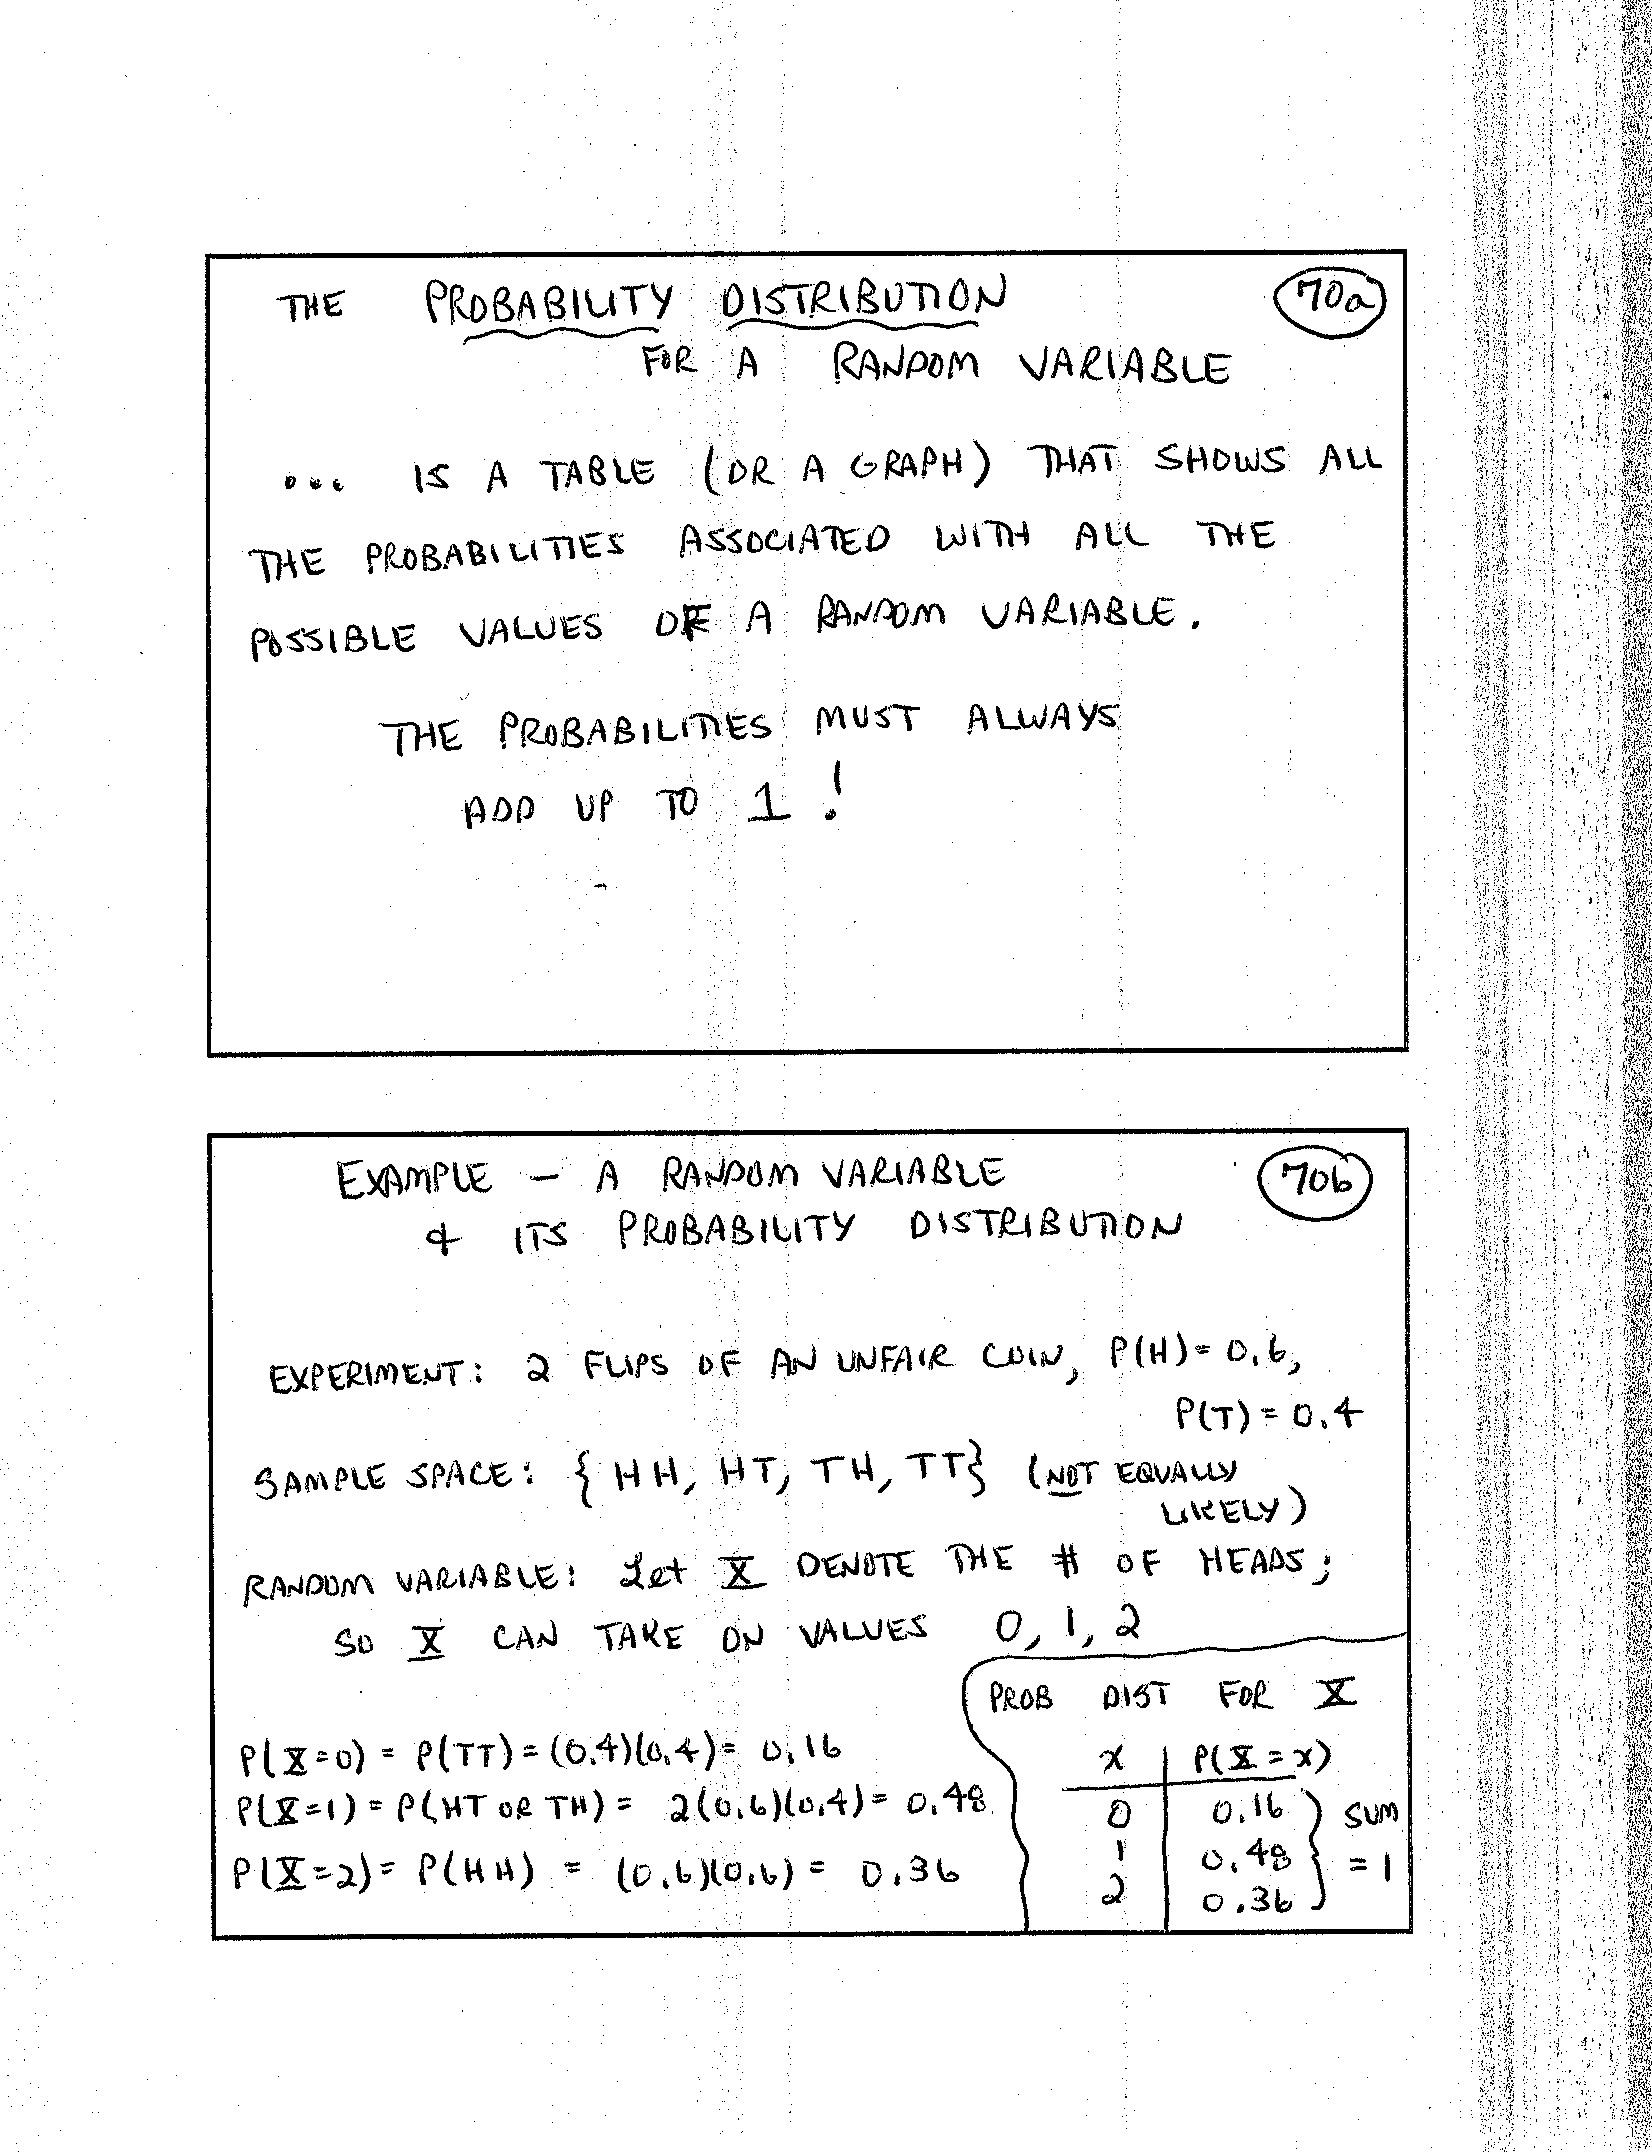 THE PROBABILITY DISTRIBUTION 70a
FOR A RANDOM VARIABLE
... IS A TABLE (OR A GRAPH) THAT SHOWS ALL
THE PROBABILITIES ASSOCIATED WITH ALL THE
POSSIBLE VALUES OF A RANDOM VARIABLE.
THE PROBABILITIES MUST ALWAYS
ADD UP TO 1!
EXAMPLE - A RANDOM VARIABLE 70b
& ITS PROBABILITY DISTRIBUTION
EXPERIMENT: 2 FLIPS OF AN UNFAIR COIN, P(H)=0.6,
P(T)=0.4
SAMPLE SPACE: {HH, HT, TH, TT} (NOT EQUALLY
LIKELY)
RANDOM VARIABLE: Let X DENOTE THE # OF HEADS;
SO X CAN TAKE ON VALUES 0, 1, 2
P(X=0) = P(TT) = (0.4)(0.4) = 0.16
P(X=1) = P(HT OR TH) = 2(0.6)(0.4) = 0.48
P(X=2) = P(HH) = (0.6)(0.6) = 0.36
PROB DIST FOR X
x P(X=x)
0 0.16 SUM
1 0.48 = 1
2 0.36